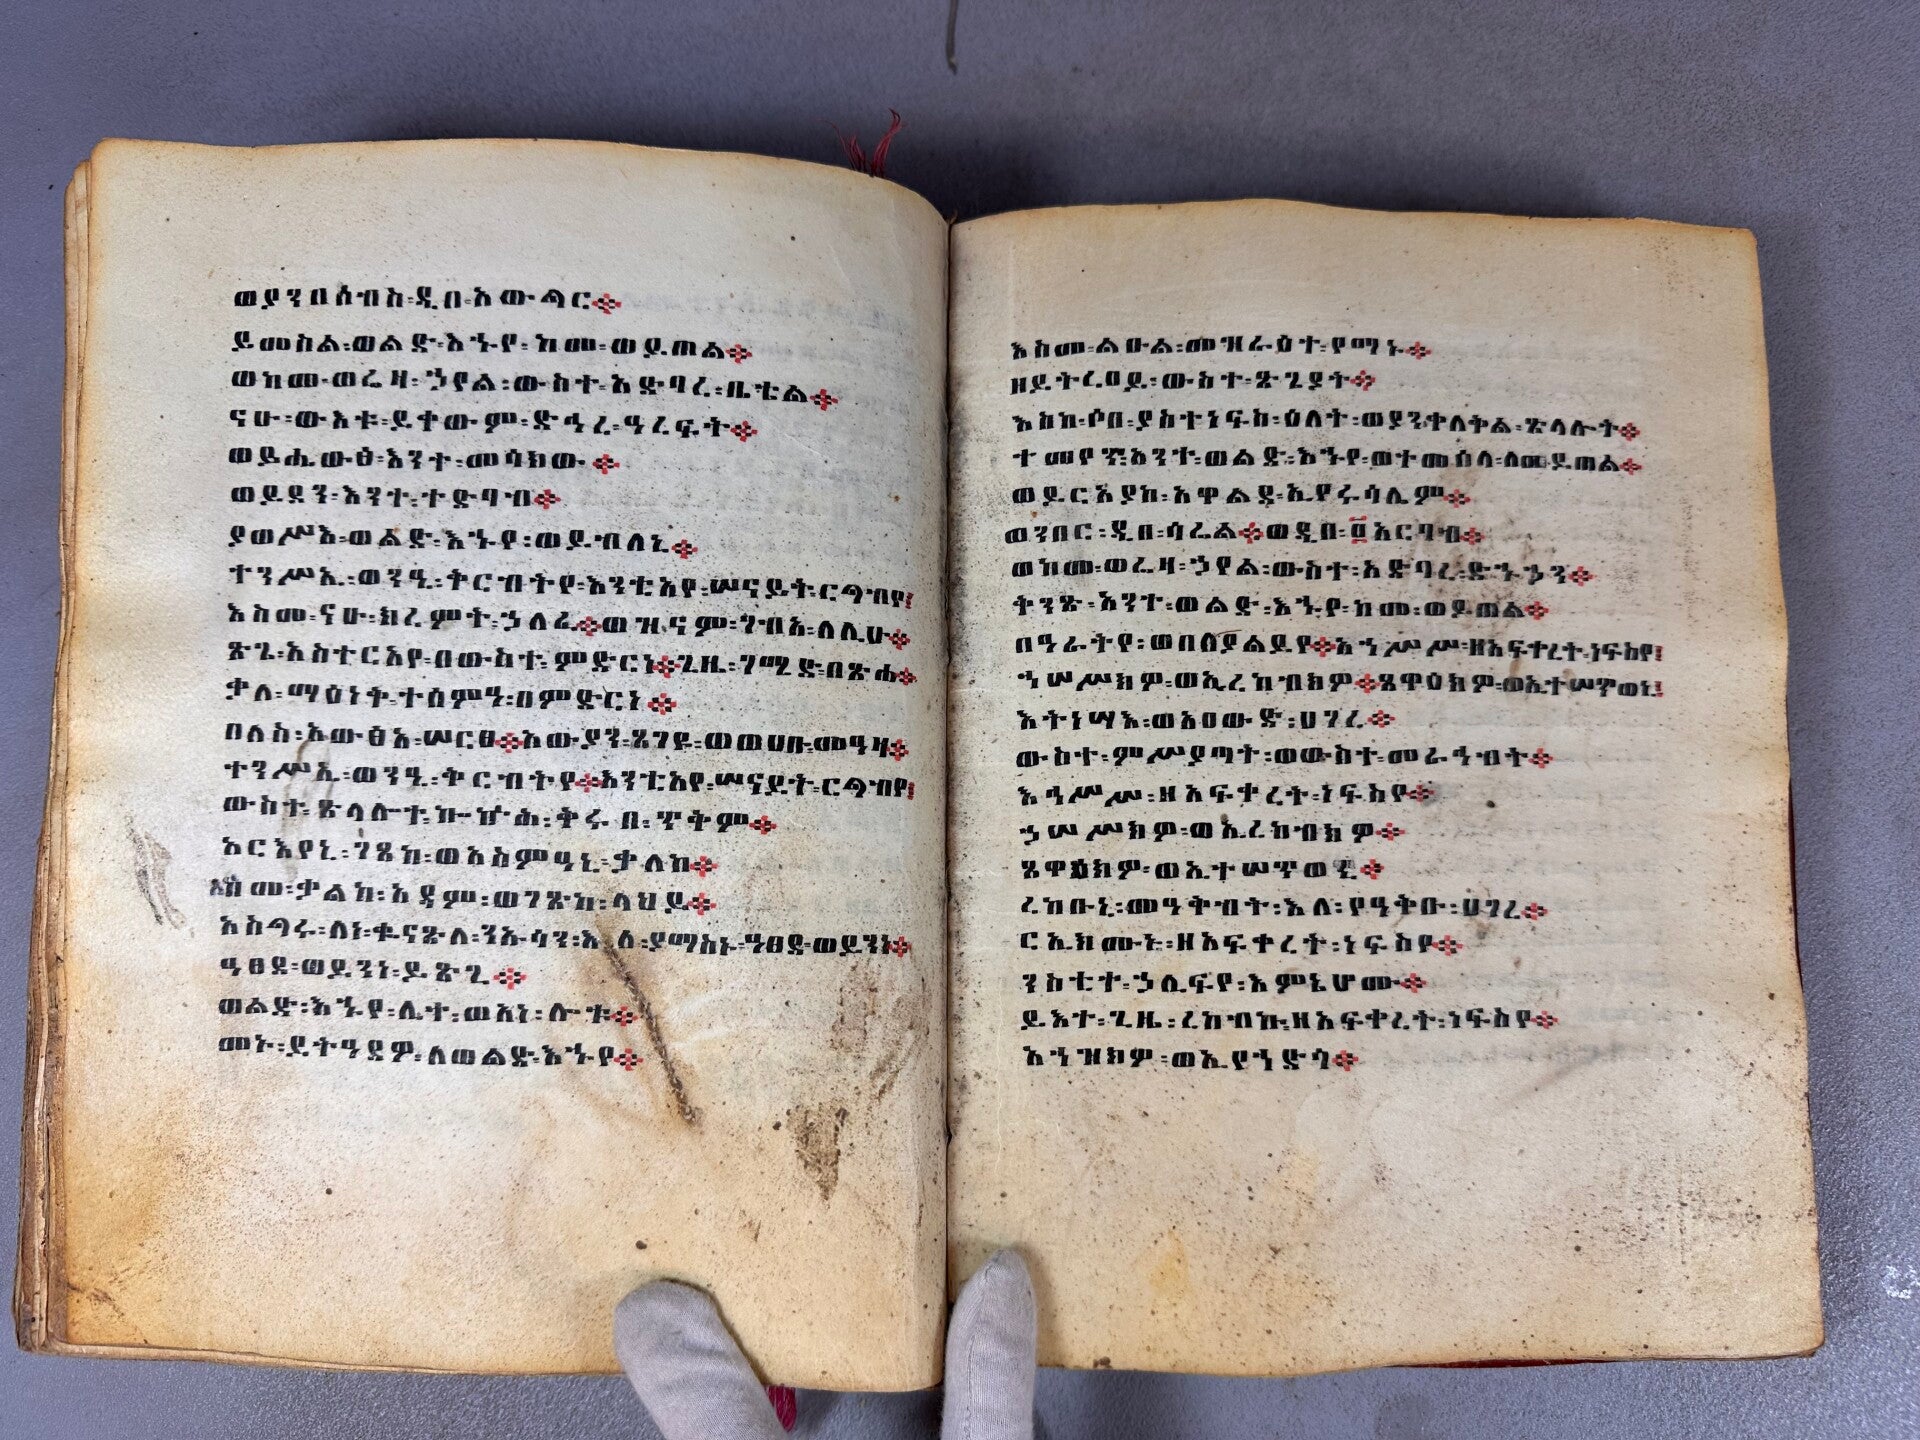 ወያንበሰብስ፡ዲበ፡አውጫር፨
ይመስል፡ወልድ፡እኁየ፡ከመ፡ወይጠል፨
ወከመ፡ወሬዛ፡ኃየል፡ውስተ፡አድባረ፡ቤቴል፨
ናሁ፡ውእቱ፡ይቀውም፡ድኅረ፡ዓረፍት፨
ወይሔውፅ፡እንተ፡መሳክው፨
ወይደን፡እንተ፡ተድባብ፨
ያወሥእ፡ወልድ፡እኁየ፡ወይብለኒ፨
ተንሥኢ፡ወንዒ፡ቅርብትየ፡እንቲአየ፡ሠናይት፡ርግብየ፤
እስመ፡ናሁ፡ክረምት፡ኃለፈ፨ወዝናም፡ገብአ፡ለሊሁ፨
ጽጌ፡አስተርአየ፡በውስተ፡ምድርነ፨ጊዜ፡ገሚድ፡በጽሐ፨
ቃለ፡ማዕነቅ፡ተሰምዓ፡በምድርነ፨
በለስ፡አውፅአ፡ሠርፀ፨አውያን፡ጸገዩ፡ወጠሀቡ፡መዓዛ፨
ተንሥኢ፡ወንዒ፡ቅርብትየ፨እንቲአየ፡ሠናይት፡ርግብየ፤
ውስተ፡ጽላሎተ፡ኰኵሐ፡ቅሩበ፡ጥቅም፨
አርእየኒ፡ገጸከ፡ወአስምዓኒ፡ቃለከ፨
እስመ፡ቃልከ፡አዳም፡ወገጽከ፡ላህይ፨
አስግሩ፡ለነ፡ቈናጽለ፡ንኡሳን፡እለ፡ያማስኑ፡ዓፀደ፡ወይንነ፨
ዓፀደ፡ወይንነ፡ይጽጊ፨
ወልድ፡እኁየ፡ሊተ፡ወአነ፡ሎቱ፨
መኑ፡ይትዓደዎ፡ለወልድ፡እኁየ፨
እስመ፡ልሁል፡መዝራዕተ፡የማኑ፨
ዘይትረዐይ፡ውስተ፡ጽጌያት፨
እስከ፡ሶበ፡ያስተነፍስ፡ዕለት፡ወያንቀለቅል፡ጽላሎት፨
ተመየጥ፡አንተ፡ወልድ፡እኁየ፡ወተመሰላ፡ለወይጠል፨
ወይርአያከ፡አዋልደ፡ኢየሩሳሌም፨
ወንበር፡ዲበ፡ሳሬል፨ወዲበ፡፬አርባብ፨
ወከመ፡ወሬዛ፡ኃየል፡ውስተ፡አድባረ፡ድኁኃን፨
ቅንጽ፡አንተ፡ወልድ፡እኁየ፡ከመ፡ወይጠል፨
በዓራትየ፡ወበለያልይየ፨አኀሥሥ፡ዘአፍቀረት፡ነፍስየ፤
ኀሠሥክዎ፡ወኢረከብክዎ፨ጸዋዕክዎ፡ወኢተሠጥወኒ፤
እትነሣእ፡ወአዐውድ፡ሀገረ፨
ውስተ፡ምሥያጣት፡ወውስተ፡መራኅብት፨
እኅሥሥ፡ዘአፍቀረት፡ነፍስየ፨
ኃሠሥክዎ፡ወኢረከብክዎ፨
ጸዋዕክዎ፡ወኢተሠጥወኒ፨
ረከቡኒ፡መዓቅብት፡እለ፡የዓቅቡ፡ሀገረ፨
ርኢክሙኑ፡ዘአፍቀረት፡ነፍስየ፨
ንስቲተ፡ኃሊፍየ፡እምኔሆሙ፨
ይእተ፡ጊዜ፡ረከብኩ፡ዘአፍቀረት፡ነፍስየ፨
አኀዝክዎ፡ወኢየኀድጎ፨